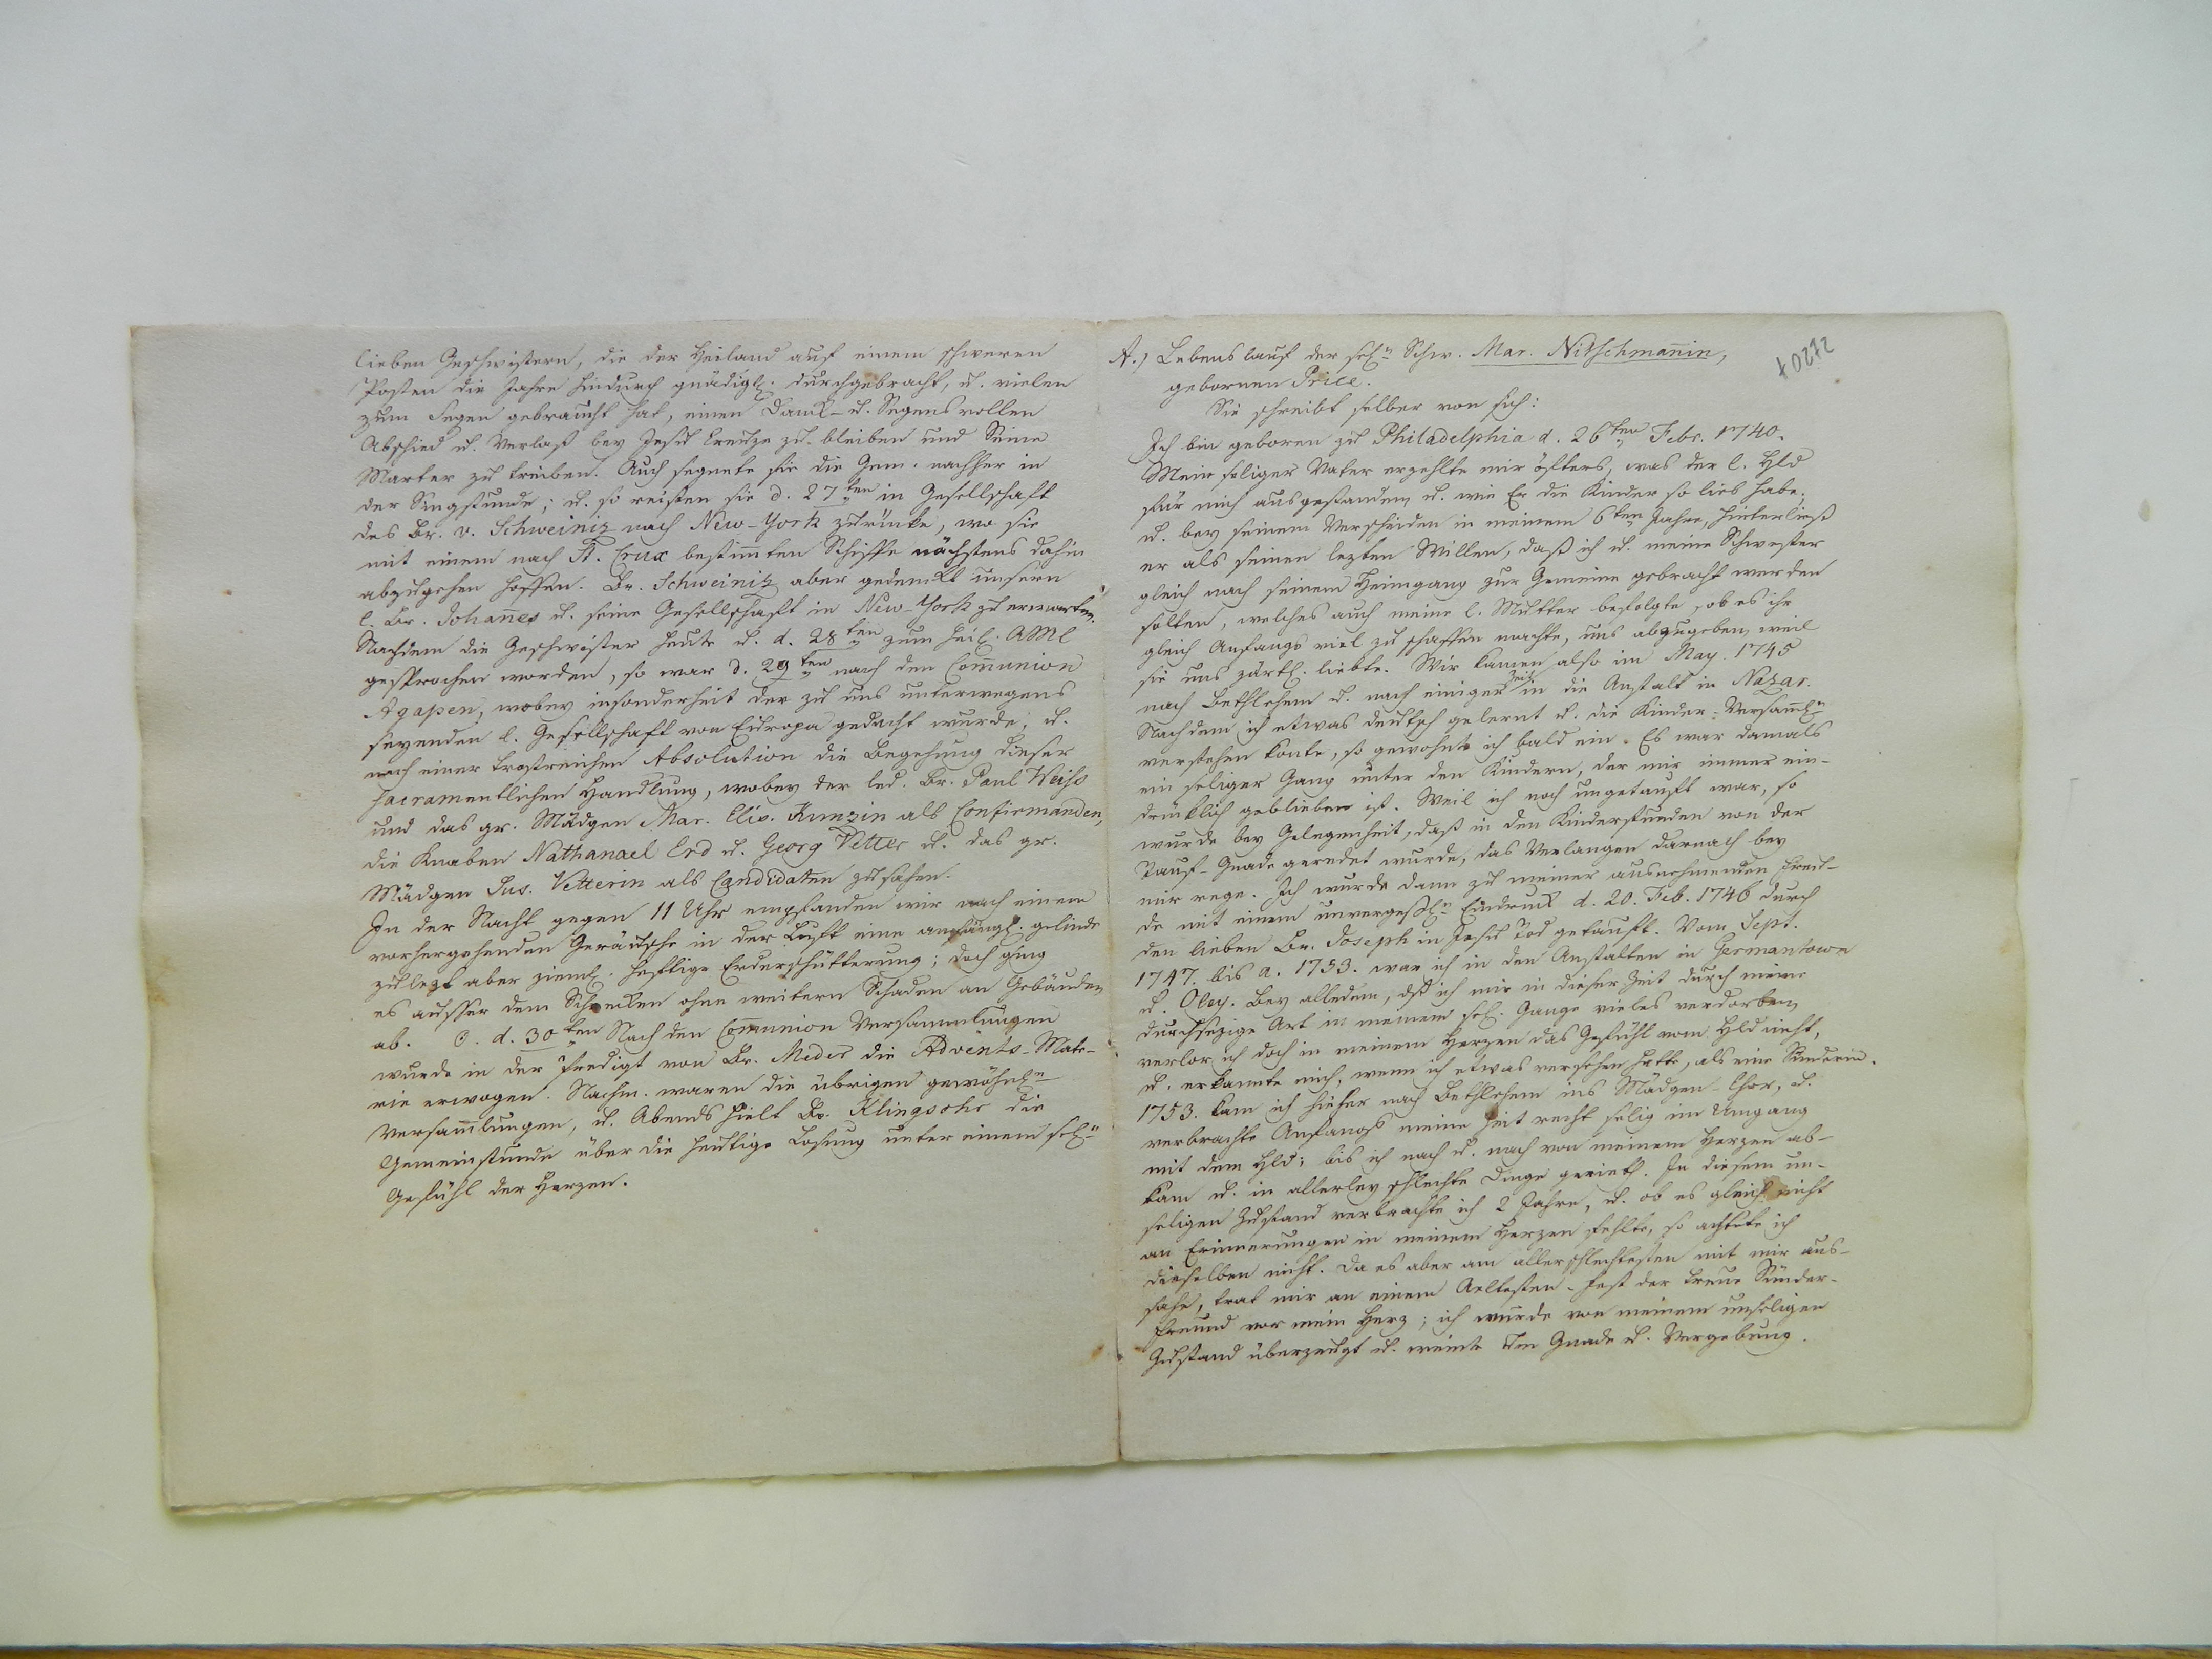 lieben Geschwistern, die der Heiland auf einem schweren
Posten die Jahre hindurch gnädigl. durchgebracht, u. vielen
zum Segen gebraucht hat, einen Dank- u. Segens vollen
Abschied u. Verlaß bey Jesu Creutze zu bleiben und Seine
Marter zu treiben. Auch segnete sie die Gem. nachher in
der Singstunde; u. so reisten sie d. 27ten in Gesellschaft
des Br. v. Schweiniz nach New-York zurücke, wo sie
mit einem nach St. Crux bestimten Schiffe nächstens dahin
abzugehen hoffen. Br. Schweiniz aber gedenckt unsern
l. Br. Johanes u. seine Gesellschaft in New-York zu erwarten.
Nachdem die Geschwister heute u. d. 28ten zum heil. AMl
gesprochen worden, so war d. 29ten nach den Comunion
Agapen, wobey insonderheit der zu uns unterwegens
seyenden l. Gesellschaft von Europa gedacht wurde, u.
nach einer trostreichen Absolution die Begehung dieser
sacramentlichen Handlung, wobey der led. Br. Paul Weiss
und das gr. Mädgen Mar. Elis. Kunzin als Confirmanden,
die Knaben Nathanael Erd u. Georg Vetter u. das gr.
Mädgen Sus. Vetterin als Candidaten zusahen.
In der Nacht gegen 11 Uhr empfanden wir nach einem
vorhergehenden Geräusche in der Luft eine anfängl. gelinde
zulezt aber zieml. heftige Erderschütterung; doch ging
es ausser dem Schrecken ohne weitern Schaden an Gebäuden
ab. ☉. d. 30ten Nach den Comunion Versammlungen
wurde in der Predigt von Br. Meder die Advents-Mate-
rie erwogen. Nachm. waren die übrigen gewöhnln
Versamlungen, u. Abends hielt Br. Klingsohr die
Gemeinstunde über die heutige Losung unter einem seln
Gefühl der Herzen.
40272
A.) Lebenslauf der seln Schw. Mar. Nitschmanin,
gebornen Price.
Sie schreibt selber von sich:
Ich bin geboren zu Philadelphia d. 26ten Febr. 1740.
Mein seliger Vater erzehlte mir öfters, was der l. Hld
für mich ausgestanden, u. wie Er die Kinder so lieb habe;
u. bey seinem Verscheiden in meinem 6ten Jahre, hinterließ
er als seinen lezten Willen, daß ich u. meine Schwester
gleich nach seinem Heimgang zur Gemeine gebracht werden
solten, welches auch meine l. Mutter befolgte, ob es ihr
gleich Anfangs viel zu schaffen machte, uns abzugeben, weil
sie uns zärtl. liebte. Wir kamen also im May 1745
nach Bethlehem u. nach einiger Zeit in die Anstalt in Nazar.
Nachdem ich etwas deutsch gelernt u. die Kinder-Versamln
verstehen konte, so gewohnte ich bald ein. Es war damals
ein seliger Gang unter den Kindern, der mir immer ein-
drücklich geblieben ist. Weil ich noch ungetauft war, so
wurde bey Gelegenheit, daß in den Kinderstunden von der
Tauf-Gnade geredet wurde, das Verlangen darnach bey
mir rege. Ich wurde dann zu meiner ausnehmenden Freu-
de mit einem unvergeßln Eindruck d. 20. Feb. 1746 durch
den lieben Br. Joseph in Jesu Tod getauft. Vom Sept.
1747. bis a. 1753. war ich in den Anstalten in Germantown
u. Oley. Bey alledem, dß ich mir in dieser Zeit durch meine
durchsezige Art in meinem sel. Gange vieles verdorben,
verlor ich doch in meinem Herzen das Gefühl vom Hld nicht,
u. erkannte mich, wenn ich etwas versehen hatte, als eine Sünderin.
1753. kam ich hieher nach Bethlehem ins Mädgen-Chor, u.
verbrachte Anfangs meine Zeit recht selig im Umgang
mit dem Hld; bis ich nach u. nach von meinem Herzen ab-
kam u. in allerley schlechte Dinge gerieth. In diesem un-
seligen Zustand verbrachte ich 2 Jahre, u. ob es gleich nicht
an Erinnerungen in meinem Herzen fehlte, so achtete ich
dieselben nicht. Da es aber am allerschlechtesten mit mir aus-
sahe, trat mir an einem Aeltesten-Fest der treue Sünder-
freund vor mein Herz; ich wurde von meinem unseligen
Zustand überzeugt u. weinte um Gnade u. Vergebung.